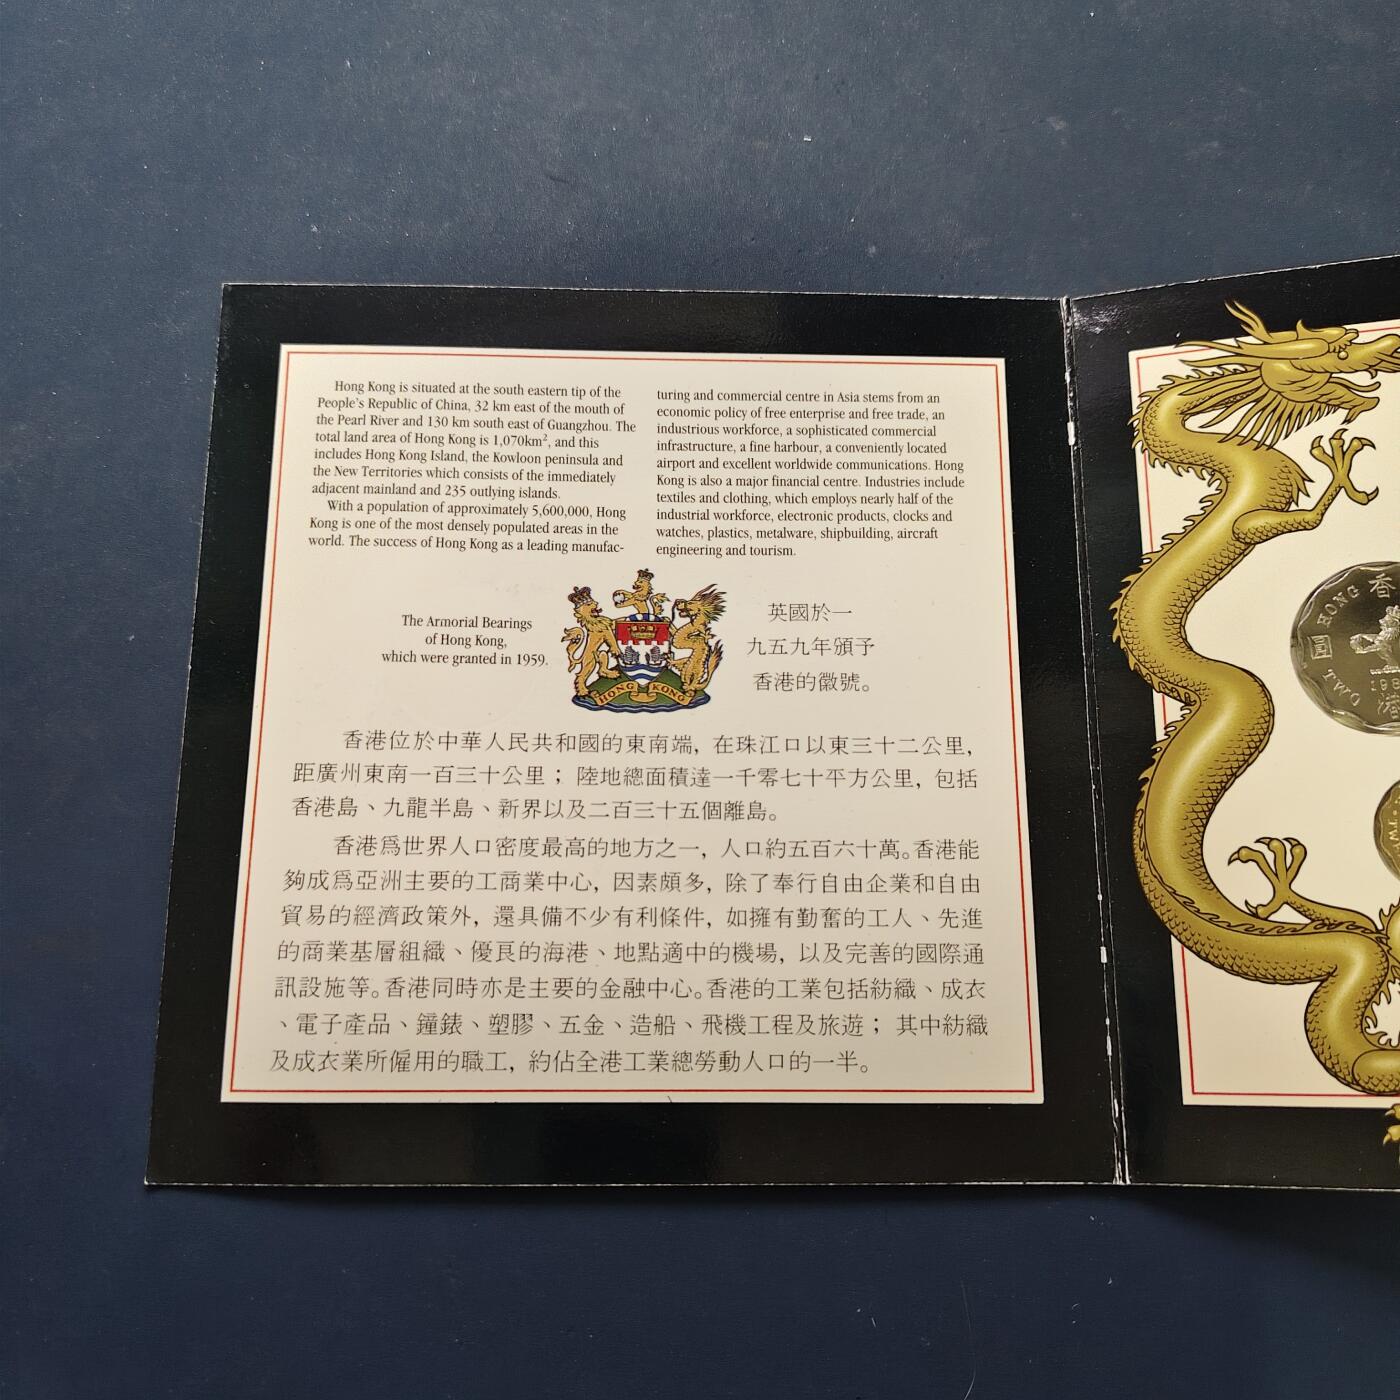 Hong Kong is situated at the south eastern tip of the
People's Republic of China, 32 km east of the mouth of
the Pearl River and 130 km south east of Guangzhou. The
total land area of Hong Kong is 1,070km², and this
includes Hong Kong Island, the Kowloon peninsula and
the New Territories which consists of the immediately
adjacent mainland and 235 outlying islands.
With a population of approximately 5,600,000, Hong
Kong is one of the most densely populated areas in the
world. The success of Hong Kong as a leading manufac-
turing and commercial centre in Asia stems from an
economic policy of free enterprise and free trade, an
industrious workforce, a sophisticated commercial
infrastructure, a fine harbour, a conveniently located
airport and excellent worldwide communications. Hong
Kong is also a major financial centre. Industries include
textiles and clothing, which employs nearly half of the
industrial workforce, electronic products, clocks and
watches, plastics, metalware, shipbuilding, aircraft
engineering and tourism.
The Armorial Bearings
of Hong Kong,
which were granted in 1959.
HONG KONG
英國於一
九五九年頒予
香港的徽號。
香港位於中華人民共和國的東南端，在珠江口以東三十二公里，
距廣州東南一百三十公里；陸地總面積達一千零七十平方公里，包括
香港島、九龍半島、新界以及二百三十五個離島。
香港爲世界人口密度最高的地方之一，人口約五百六十萬。香港能
夠成爲亞洲主要的工商業中心，因素頗多，除了奉行自由企業和自由
貿易的經濟政策外，還具備不少有利條件，如擁有勤奮的工人、先進
的商業基層組織、優良的海港、地點適中的機場，以及完善的國際通
訊設施等。香港同時亦是主要的金融中心。香港的工業包括紡織、成衣
、電子產品、鐘錶、塑膠、五金、造船、飛機工程及旅遊；其中紡織
及成衣業所僱用的職工，約佔全港工業總勞動人口的一半。
HONG
香
圓
TWO
港